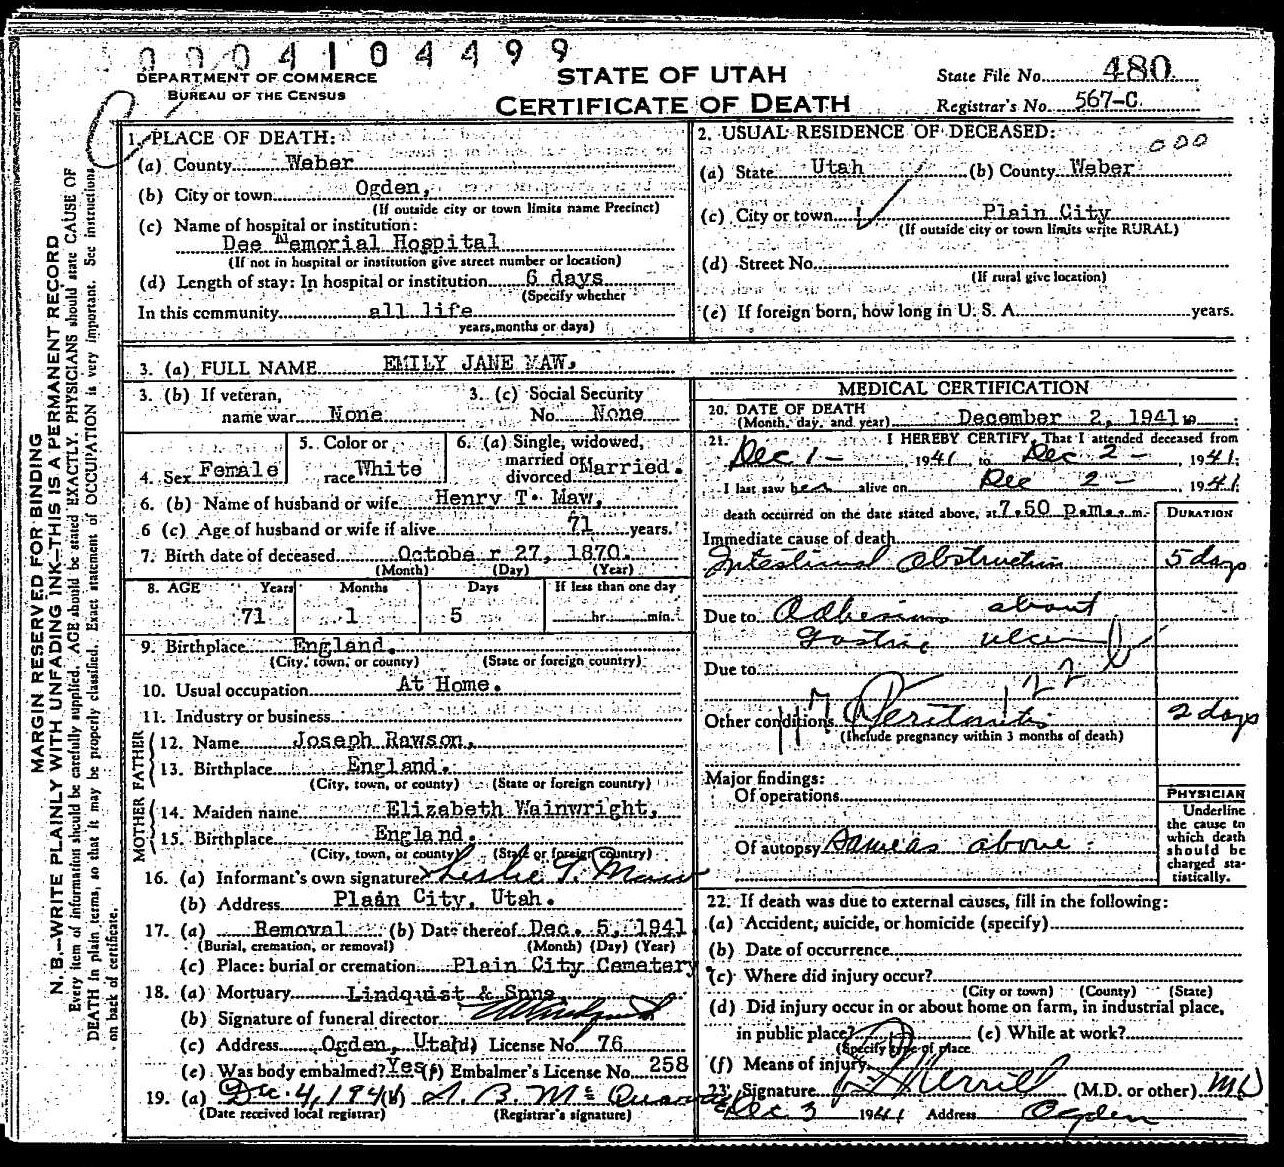 0004104499
DEPARTMENT OF COMMERCE
BUREAU OF THE CENSUS
STATE OF UTAH
CERTIFICATE OF DEATH
State File No. 480
Registrar's No. 567-C.
MARGIN RESERVED FOR BINDING
N. B.—WRITE PLAINLY WITH UNFADING INK—THIS IS A PERMANENT RECORD
Every item of information should be carefully supplied. AGE should be stated EXACTLY. PHYSICIANS should state CAUSE OF
DEATH in plain terms, so that it may be properly classified. Exact statement of OCCUPATION is very important. See instructions
on back of certificate.
1. PLACE OF DEATH:
(a) County Weber
(b) City or town Ogden,
(If outside city or town limits name Precinct)
(c) Name of hospital or institution:
Dee Memorial Hospital
(If not in hospital or institution give street number or location)
(d) Length of stay: In hospital or institution 6 days
(Specify whether
In this community all life
years, months or days)
2. USUAL RESIDENCE OF DECEASED:
000
(a) State Utah (b) County Weber
(c) City or town Plain City
(If outside city or town limits write RURAL)
(d) Street No.
(If rural give location)
(e) If foreign born, how long in U. S. A. years.
3. (a) FULL NAME EMILY JANE MAW,
3. (b) If veteran,
name war None
3. (c) Social Security
No. None
4. Sex Female
5. Color or
race White
6. (a) Single, widowed,
married or
divorced Married.
6. (b) Name of husband or wife Henry T. Maw,
6 (c) Age of husband or wife if alive 71 years.
7. Birth date of deceased Octobe r 27, 1870.
(Month) (Day) (Year)
8. AGE Years Months Days If less than one day
71 1 5 hr. min.
9. Birthplace England.
(City, town, or county) (State or foreign country)
10. Usual occupation At Home.
11. Industry or business
FATHER
12. Name Joseph Rawson,
13. Birthplace England.
(City, town, or county) (State or foreign country)
MOTHER
14. Maiden name Elizabeth Wainwright,
15. Birthplace England.
(City, town, or county) (State or foreign country)
16. (a) Informant's own signature Leslie T. Maw
(b) Address Plain City, Utah.
17. (a) Removal (b) Date thereof Dec. 5, 1941
(Burial, cremation, or removal) (Month) (Day) (Year)
(c) Place: burial or cremation Plain City Cemetery
18. (a) Mortuary Lindquist & Sons,
(b) Signature of funeral director
(c) Address Ogden, Utah (d) License No. 76
(e) Was body embalmed? Yes (f) Embalmer's License No. 258
19. (a) Dec. 4, 1941 (b)
(Date received local registrar) (Registrar's signature)
MEDICAL CERTIFICATION
20. DATE OF DEATH
(Month, day, and year) December 2, 1941 19
21. I HEREBY CERTIFY, That I attended deceased from
Dec 1 - , 1941, to Dec 2 - , 1941;
I last saw her alive on Dec 2 - , 1941;
death occurred on the date stated above, at 7.50 p.m. m.
DURATION
Immediate cause of death
Intestinal Obstruction 5 days
Due to Adhesions about
gastric ulcer
Due to
122 b
117
Other conditions Peritonitis 2 days
(Include pregnancy within 3 months of death)
Major findings:
Of operations
Of autopsy Same as above.
PHYSICIAN
Underline
the cause to
which death
should be
charged sta-
tistically.
22. If death was due to external causes, fill in the following:
(a) Accident, suicide, or homicide (specify)
(b) Date of occurrence
(c) Where did injury occur?
(City or town) (County) (State)
(d) Did injury occur in or about home on farm, in industrial place,
in public place? (e) While at work?
(Specify type of place
(f) Means of injury
23. Signature Merrill (M.D. or other) MD
Dec 3 1941 Address Ogden